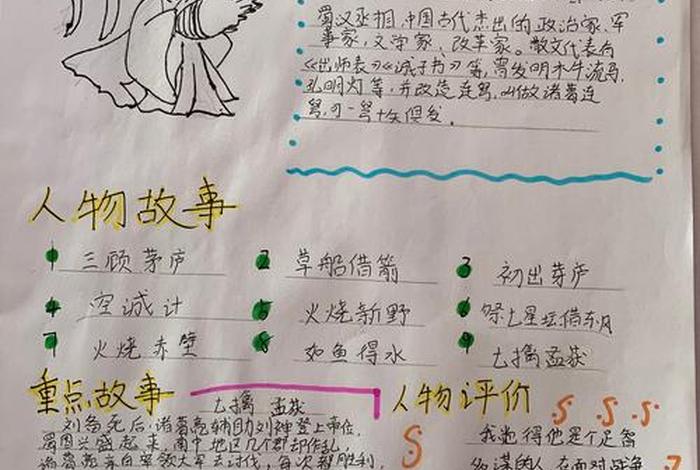 蜀汉丞相,中国古代杰出的政治家、军
事家,文学家、改革家。散文代表有
《出师表》《诫子书》等,曾发明木牛流马,
孔明灯等,并改造连弩,叫做诸葛连
弩,可一弩十矢俱发。
人物故事
1 三顾茅庐 2 草船借箭 3 初出茅庐
4 空诚计 5 火烧新野 6 祭七星坛借东风
7 火烧赤壁 8 如鱼得水 9 七擒孟获
重点故事 七擒孟获 人物评价
刘备死后,诸葛亮辅助刘禅登上帝位,
蜀国兴盛起来,南中地区几个郡却作乱,
诸葛亮亲自率领大军去讨伐,每次都胜利,
我觉得他是个足智
多谋的人,在面对战争